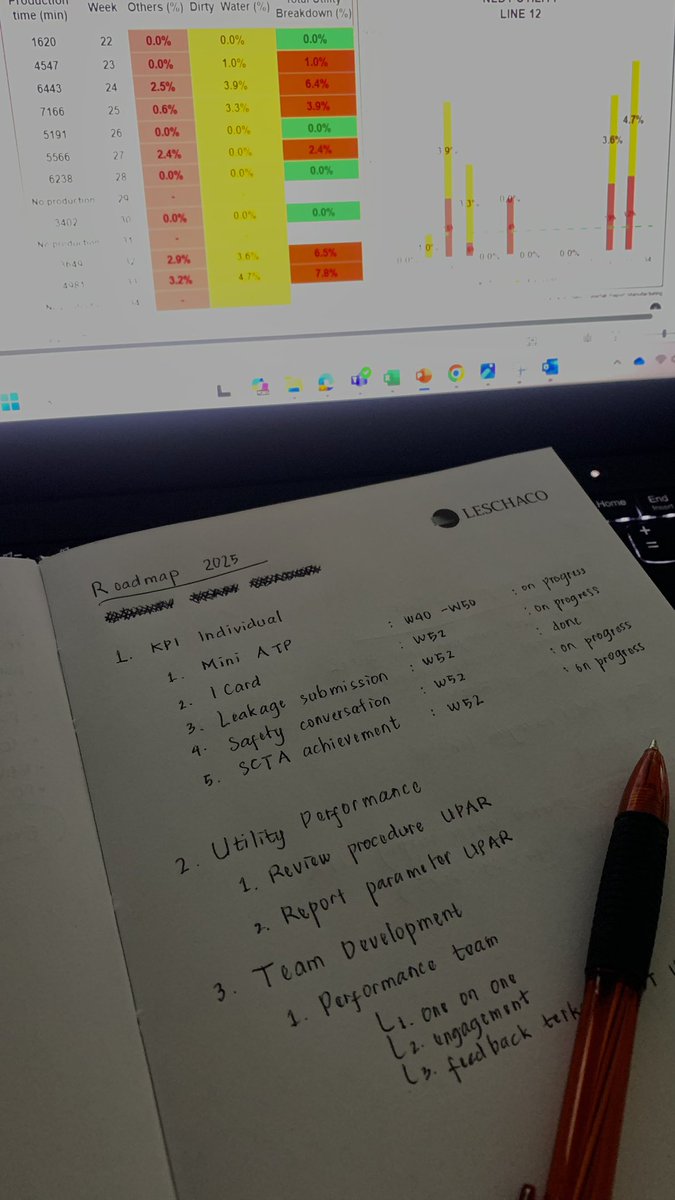 Production
time (min) Week Others (%) Dirty Water (%) Total Utility
Breakdown (%)
1620 22 0.0% 0.0% 0.0%
4547 23 0.0% 1.0% 1.0%
6443 24 2.5% 3.9% 6.4%
7166 25 0.6% 3.3% 3.9%
5191 26 0.0% 0.0% 0.0%
5566 27 2.4% 0.0% 2.4%
6238 28 0.0% 0.0% 0.0%
No production 29 -
3402 30 0.0% 0.0% 0.0%
No production 31 -
3649 32 2.9% 3.6% 6.5%
4981 33 3.2% 4.7% 7.8%
34 -
LINE 12
3.6% 4.7%
0.0% 0.0% 0.0%
Home End
Insert
LESCHACO
Roadmap 2025
1. KPI Individual
1. Mini ATP : W40 - W50 : on progress
2. I Card : W52 : on progress
3. Leakage submission : W52 : done
4. Safety conversation : W52 : on progress
5. SCTA achievement : W52 : on progress
2. Utility Performance
1. Review procedure UPAR
2. Report parameter UPAR
3. Team Development
1. Performance team
1. one on one
2. engagement
3. feedback